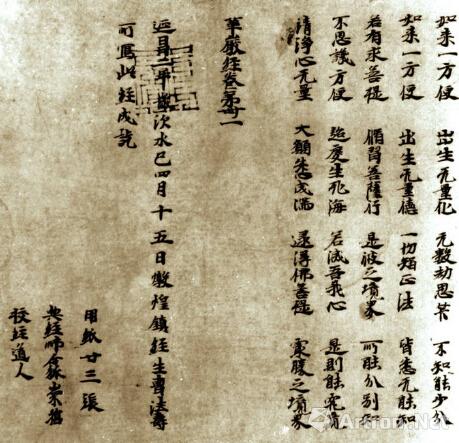 如来一方便 出生无量化 无數劫思惟 不知能少分
如来一方便 出生无量德 一切類正法 皆悉无能知
若有求菩提 脩習菩薩行 是彼之境界 所能分別知
不思議方便 超度生死海 若滅吾我心 是則能究竟
清淨心无量 大願悉成滿 逮得佛菩提 最勝之境界
華嚴經卷第卌一
延昌二年歲次水巳四月十五日敦煌鎮經生曹法壽
所寫此經成訖
用紙廿三張
典經師令狐崇哲
校經道人
Artron.Net